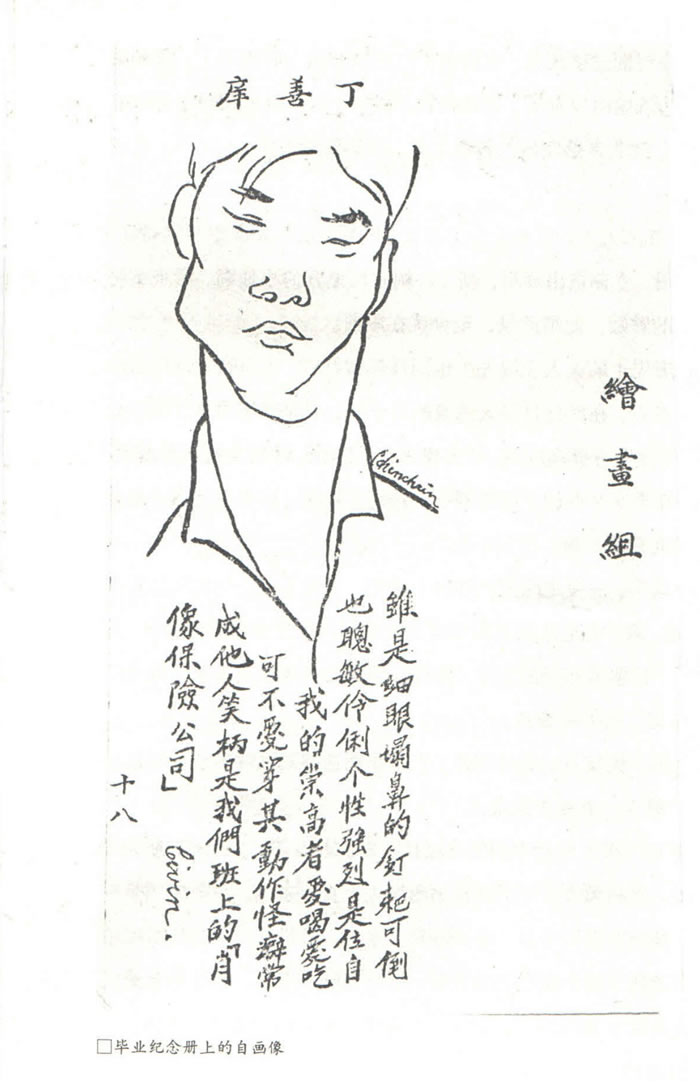 丁善庠
繪畫組
雖是細眼塌鼻的釘耙可倒
也聰敏伶俐个性強烈是位自
我的崇高者愛喝愛吃
可不愛穿其動作怪癖常
成他人笑柄是我們班上的「肖
像保險公司」
十八
□毕业纪念册上的自画像